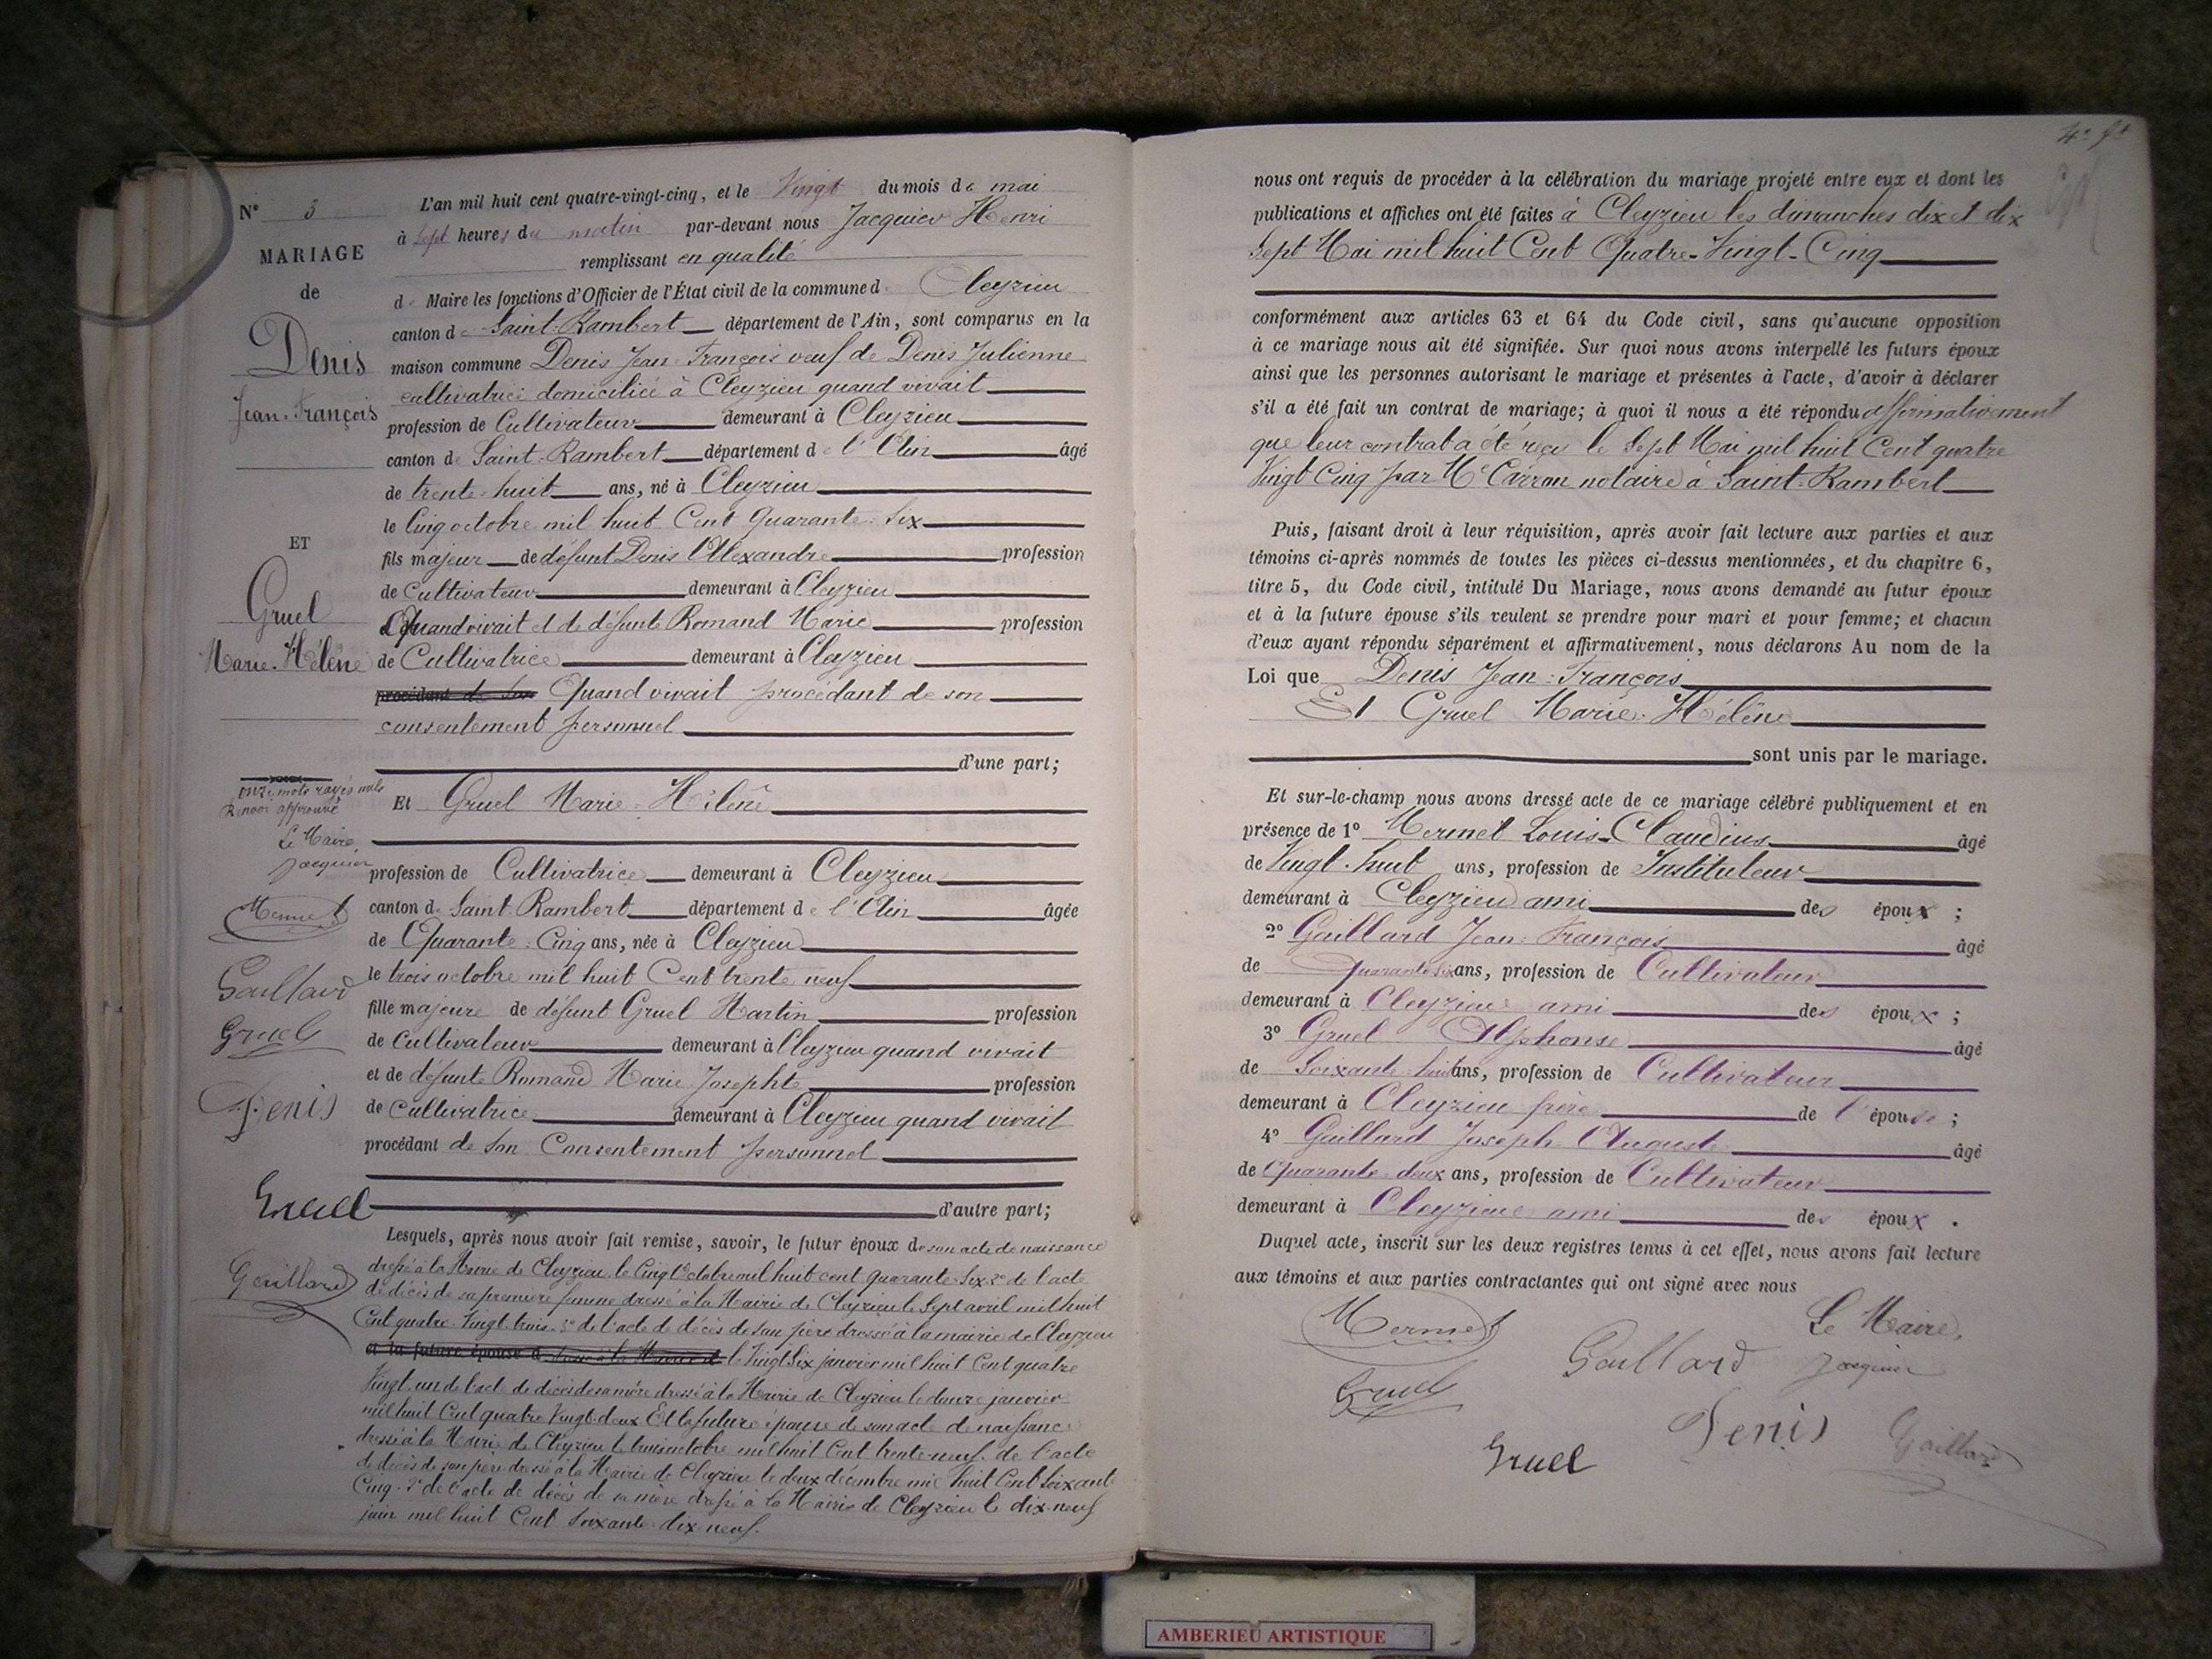 N° 3
MARIAGE
de
Denis
Jean-François
ET
Gruel
Marie-Hélène
onze mots rayés nuls
Renvoi approuvé
Le Maire
Jacquier
Mermet
Gaillard
Gruel
Denis
Gruel
Gaillard
L'an mil huit cent quatre-vingt-cinq, et le Vingt du mois de mai
à Sept heures du matin par-devant nous Jacquier Henri
remplissant en qualité
de Maire les fonctions d'Officier de l'État civil de la commune d Cleyzieu
canton de Saint-Rambert département de l'Ain, sont comparus en la
maison commune Denis Jean-François veuf de Denis Julienne
cultivatrice domiciliée à Cleyzieu quand vivait
profession de Cultivateur demeurant à Cleyzieu
canton de Saint-Rambert département de l'Ain âgé
de trente-huit ans, né à Cleyzieu
le Cinq octobre mil huit Cent Quarante-Six
fils majeur de défunt Denis Alexandre profession
de Cultivateur demeurant à Cleyzieu
Quand vivait et de défunte Romand Marie profession
de Cultivatrice demeurant à Cleyzieu
procédant de son Quand vivait procédant de son
consentement personnel
d'une part;
Et Gruel Marie-Hélène
profession de Cultivatrice demeurant à Cleyzieu
canton de Saint-Rambert département de l'Ain âgée
de Quarante-Cinq ans, née à Cleyzieu
le trois octobre mil huit Cent trente neuf
fille majeure de défunt Gruel Martin profession
de Cultivateur demeurant à Cleyzieu quand vivait
et de défunte Romand Marie Josephte profession
de Cultivatrice demeurant à Cleyzieu quand vivait
procédant de son Consentement personnel
d'autre part;
Lesquels, après nous avoir fait remise, savoir, le futur époux de son acte de naissance
dressé à la Mairie de Cleyzieu le Cinq Octobre mil huit cent quarante-Six 2° de l'acte
de décès de sa première femme dressé à la Mairie de Cleyzieu le Sept avril mil huit
Cent quatre-Vingt-trois 3° de l'acte de décès de son père dressé à la mairie de Cleyzieu
et la future épouse d le Vingt Six janvier mil huit Cent quatre
Vingt-un de l'acte de décès de sa mère dressé à la Mairie de Cleyzieu le douze janvier
mil huit Cent quatre Vingt-deux Et la future épouse de son acte de naissance
dressé à la Mairie de Cleyzieu le trois octobre mil huit Cent trente-neuf de l'acte
de décès de son père dressé à la Mairie de Cleyzieu le deux décembre mil huit Cent Soixante
Cinq 3° de l'acte de décès de sa mère dressé à la Mairie de Cleyzieu le dix-neuf
juin mil huit Cent Soixante-dix-neuf.
nous ont requis de procéder à la célébration du mariage projeté entre eux et dont les
publications et affiches ont été faites à Cleyzieu les dimanches dix et dix
Sept Mai mil huit Cent Quatre-Vingt-Cinq
conformément aux articles 63 et 64 du Code civil, sans qu'aucune opposition
à ce mariage nous ait été signifiée. Sur quoi nous avons interpellé les futurs époux
ainsi que les personnes autorisant le mariage et présentes à l'acte, d'avoir à déclarer
s'il a été fait un contrat de mariage; à quoi il nous a été répondu affirmativement
que leur contrat a été reçu le Sept Mai mil huit Cent quatre
Vingt Cinq par Me Carron notaire à Saint-Rambert
Puis, faisant droit à leur réquisition, après avoir fait lecture aux parties et aux
témoins ci-après nommés de toutes les pièces ci-dessus mentionnées, et du chapitre 6,
titre 5, du Code civil, intitulé Du Mariage, nous avons demandé au futur époux
et à la future épouse s'ils veulent se prendre pour mari et pour femme; et chacun
d'eux ayant répondu séparément et affirmativement, nous déclarons Au nom de la
Loi que Denis Jean-François
Et Gruel Marie-Hélène
sont unis par le mariage.
Et sur-le-champ nous avons dressé acte de ce mariage célébré publiquement et en
présence de 1° Mermet Louis-Claudius âgé
de Vingt-huit ans, profession de Instituteur
demeurant à Cleyzieu ami des époux ;
2° Gaillard Jean-François âgé
de quarante six ans, profession de Cultivateur
demeurant à Cleyzieu ami des époux ;
3° Gruel Alphonse âgé
de Soixante-huit ans, profession de Cultivateur
demeurant à Cleyzieu frère de l'épouse ;
4° Gaillard Joseph Auguste âgé
de Quarante-deux ans, profession de Cultivateur
demeurant à Cleyzieu ami des époux .
Duquel acte, inscrit sur les deux registres tenus à cet effet, nous avons fait lecture
aux témoins et aux parties contractantes qui ont signé avec nous
Mermet Le Maire,
Gaillard Jacquier
Gruel
Denis Gaillard
Gruel
AMBERIEU ARTISTIQUE